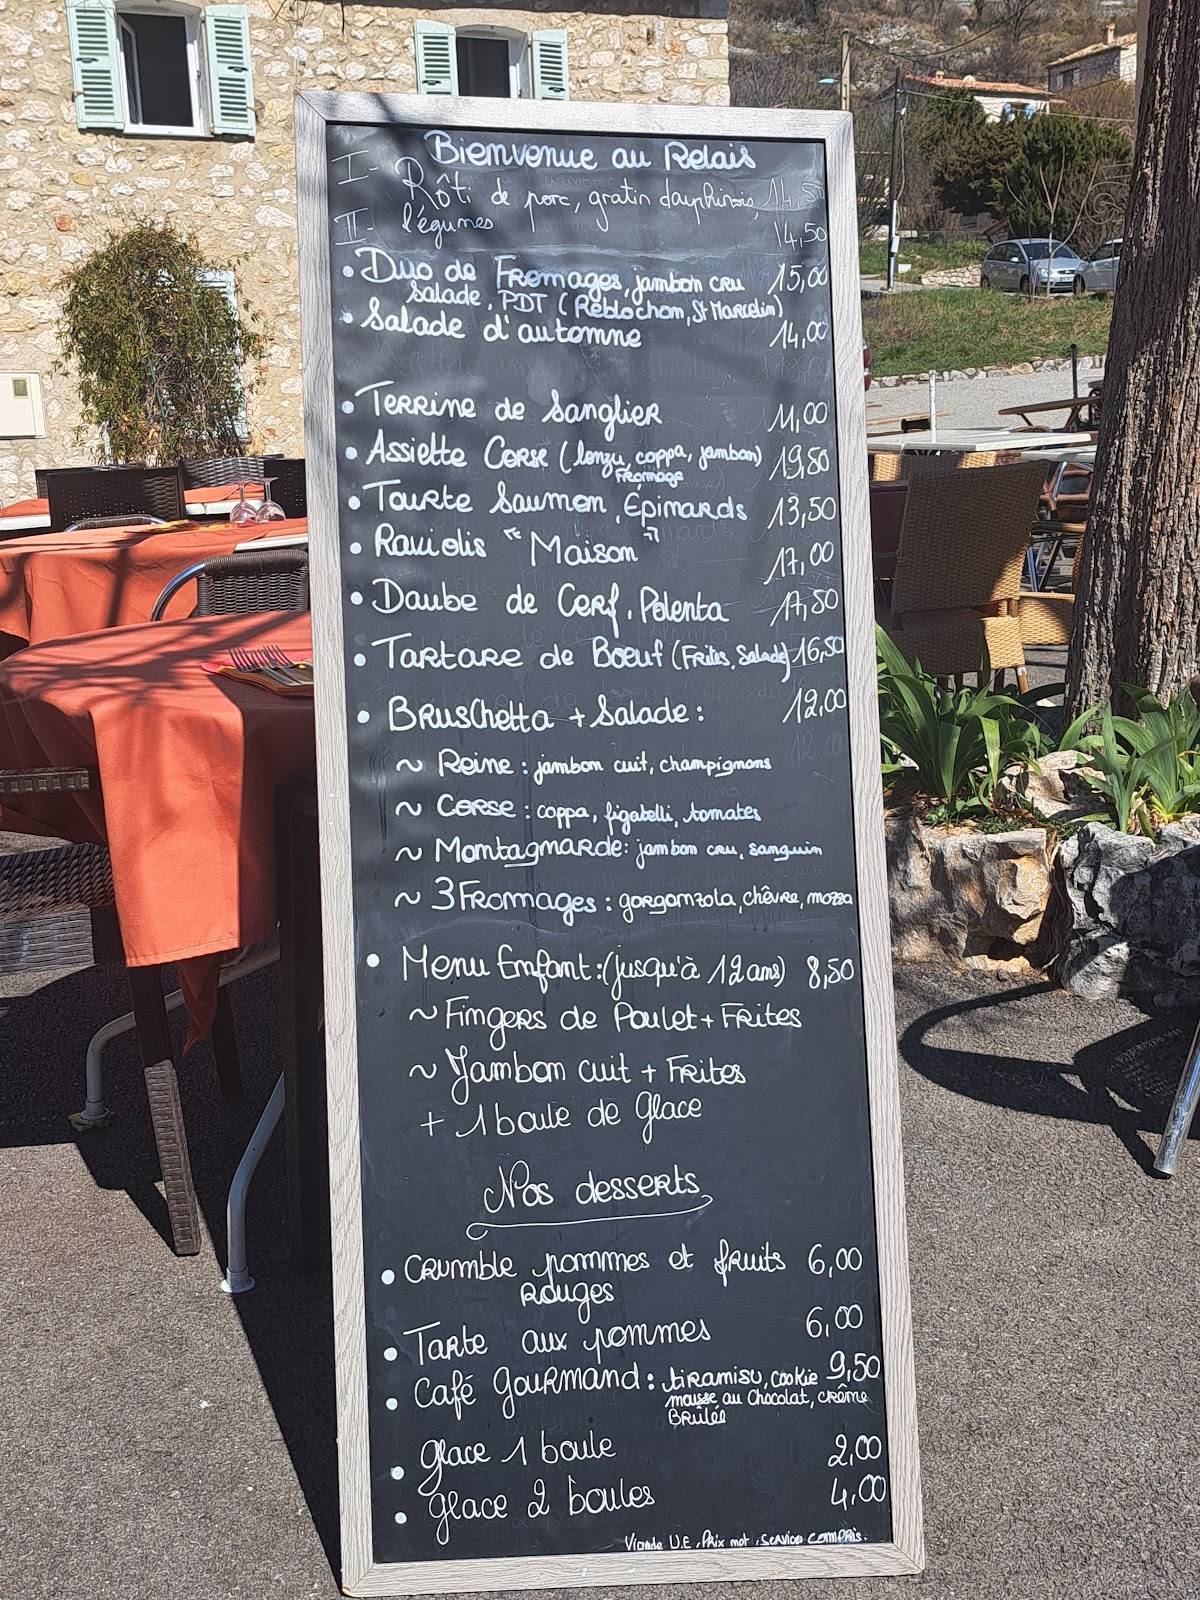 Bienvenue au Relais
I- Rôti de porc, gratin dauphinois, 14,50
II- légumes 14,50
• Duo de Fromages, jambon cru 15,00
salade, PDT (Reblochon, St Marcelin)
• Salade d'automne 14,00
• Terrine de Sanglier 11,00
• Assiette Corse (lonzu, coppa, jambon) 19,50
Fromage
• Tourte Saumon, Épinards 13,50
• Raviolis "Maison" 17,00
• Daube de Cerf, Polenta 17,50
• Tartare de Boeuf (Frites, Salade) 16,50
• Bruschetta + Salade : 12,00
~ Reine : jambon cuit, champignons
~ Corse : coppa, figatelli, tomates
~ Montagnarde : jambon cru, sanguin
~ 3 Fromages : gorgonzola, chêvre, mozza
• Menu Enfant : (jusqu'à 12 ans) 8,50
~ Fingers de Poulet + Frites
~ Jambon cuit + Frites
+ 1 boule de Glace
Nos desserts
• Crumble pommes et fruits 6,00
Rouges
• Tarte aux pommes 6,00
• Café Gourmand : tiramisu, cookie 9,50
mousse au Chocolat, crème
Brûlée
• Glace 1 boule 2,00
• Glace 2 boules 4,00
Viande U.E, Prix net, Services compris.